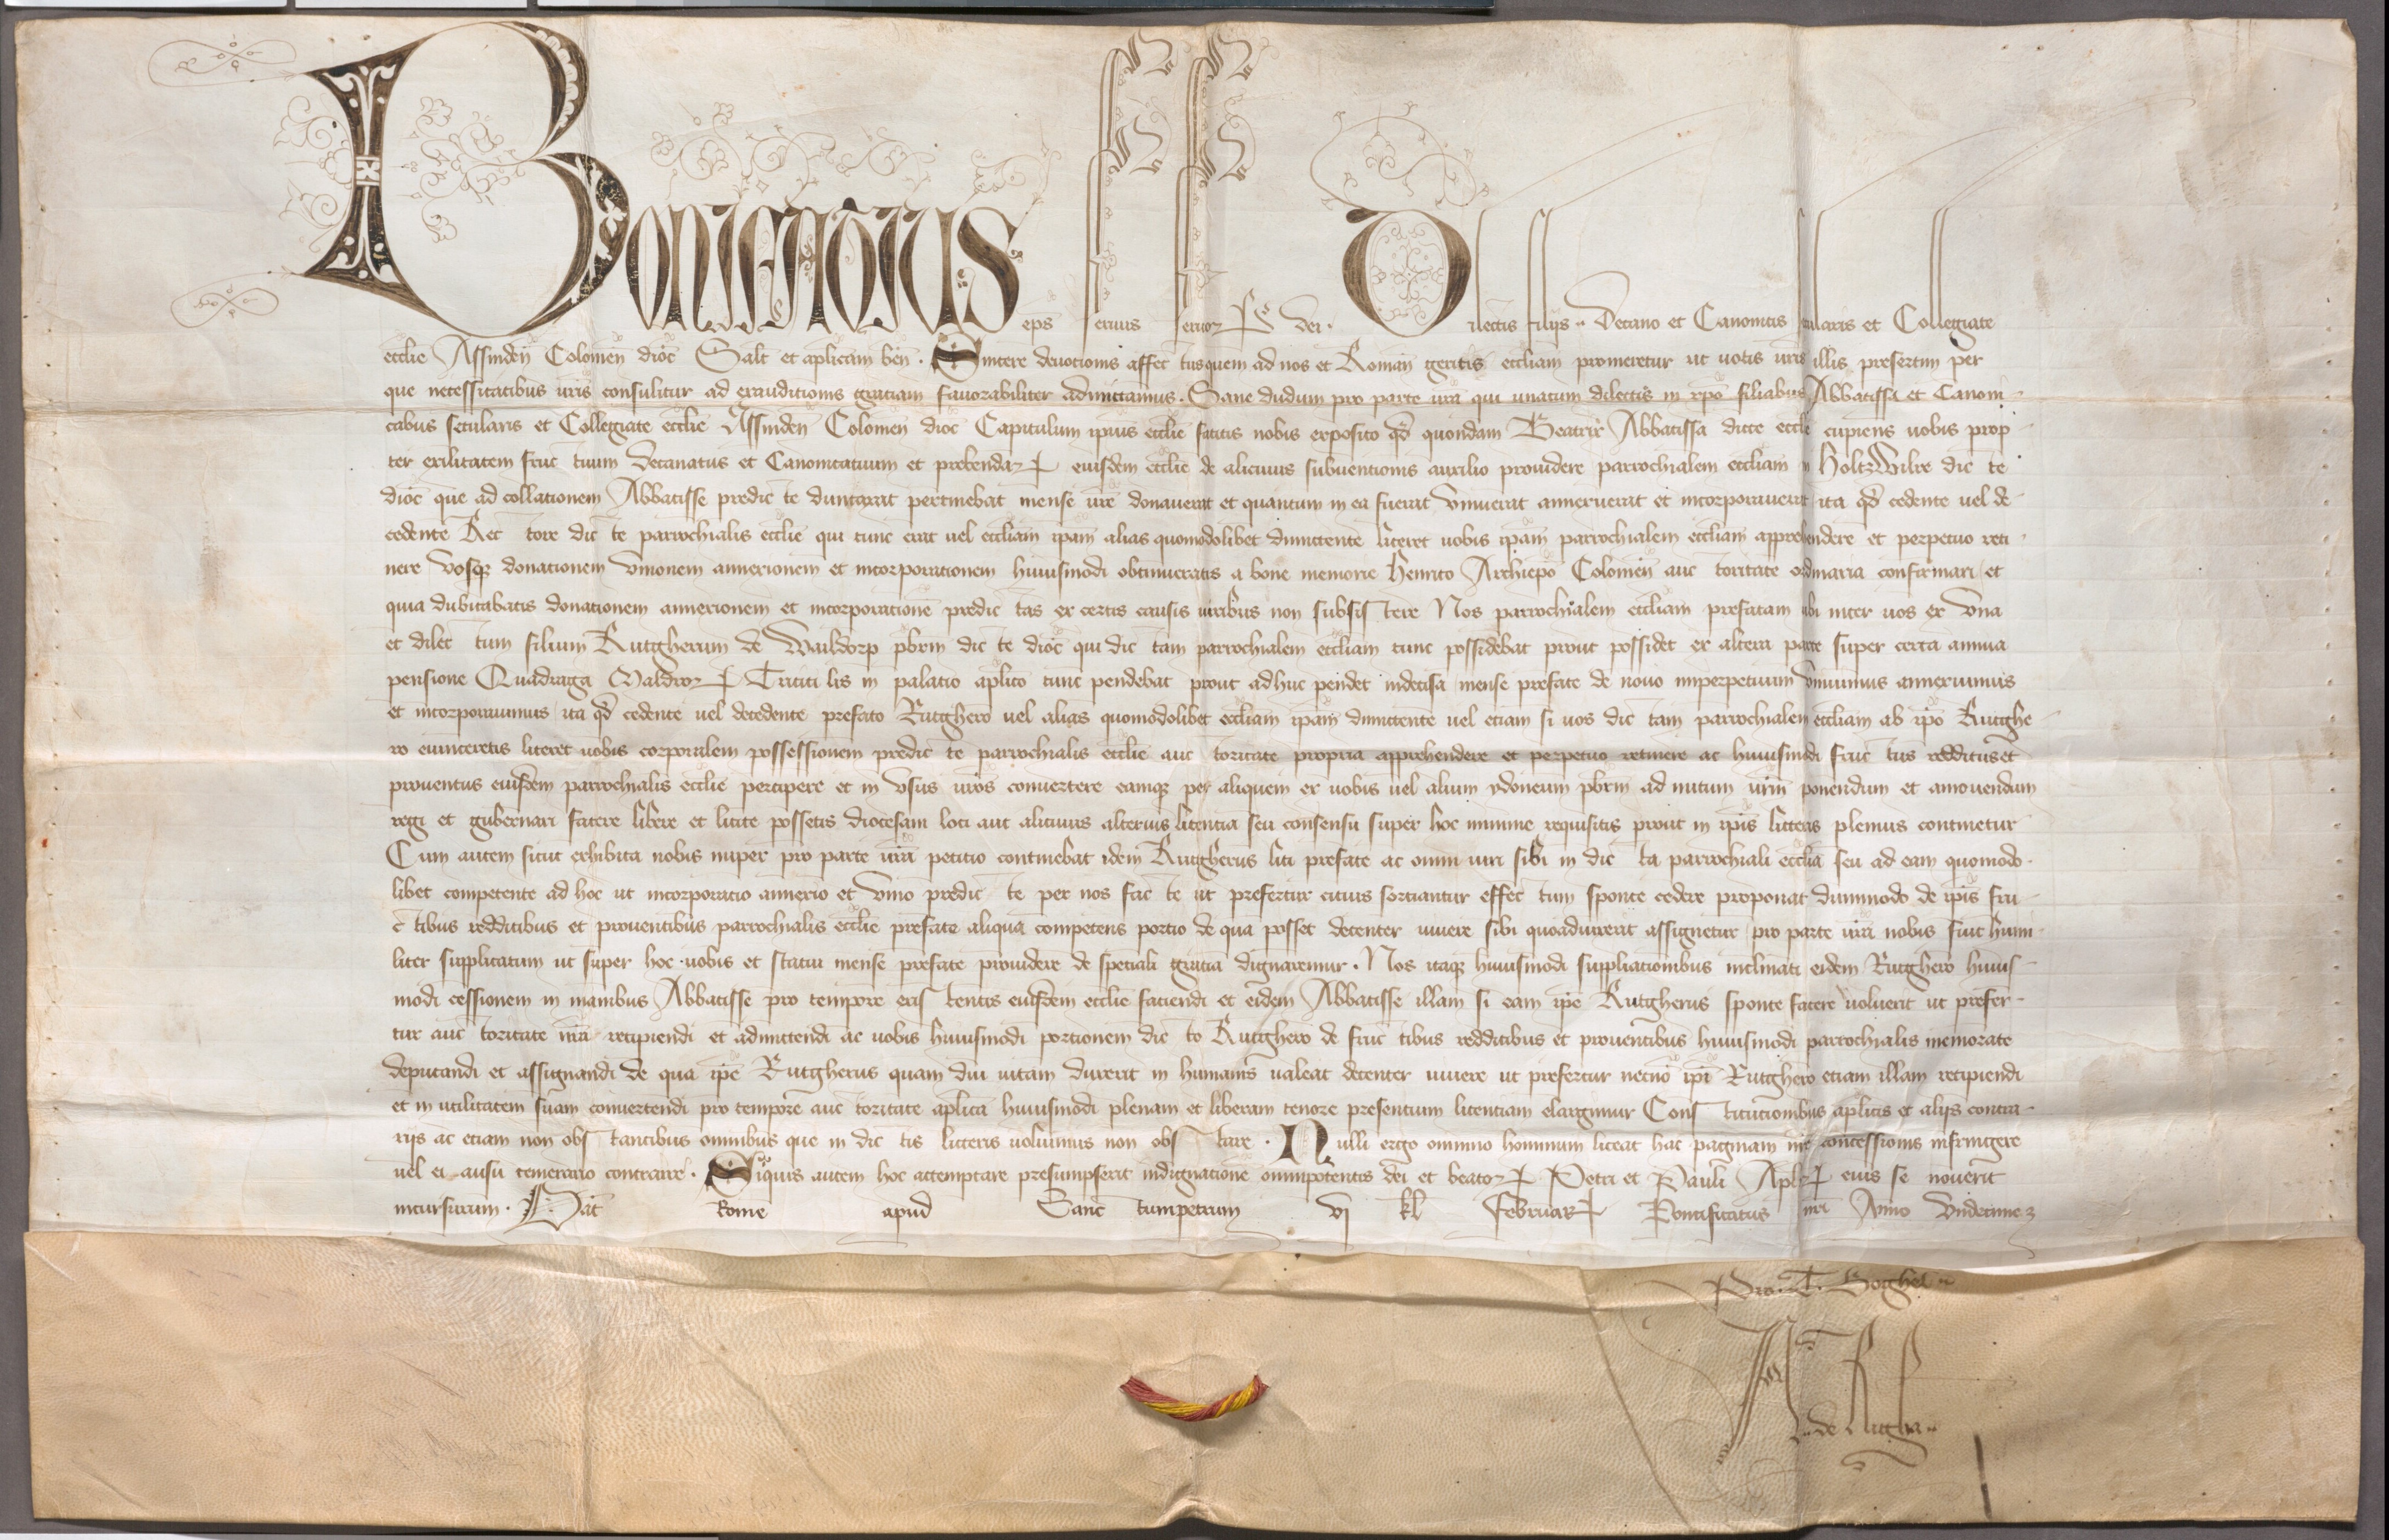 Bonifatius eps seruus seruoꝝ dei. Dilectis filijs .. Decano et Canonicis secularis et Collegiate
ecclie Assinden̄ Colonien̄ dioc̄ Salt̄ et aplicam ben̄. Sincere deuotionis affectus quem ad nos et Roman̄ geritis eccliam promeretur ut uotis uris illis presertim per
que necessitatibus uris consulitur ad exauditionis gratiam fauorabiliter admittamus. Sane dudum pro parte ura qui unacum dilectis in xpo filiabus Abbatissa et Canoni-
cabus secularis et Collegiate ecclie Assinden̄ Colonien̄ dioc̄ Capitulum ipius ecclie facitis nobis exposito qd quondam Beatrix Abbatissa dicte ecclie cupiens uobis prop-
ter exilitatem fructuum Decanatus et Canonicatuum et prebendaꝝ eiusdem ecclie de alicuius subuentionis auxilio prouidere parrochialem eccliam in HoltzWilre dicte
dioc̄ que ad collationem Abbatisse predicte duntaxat pertinebat mense ure donauerat et quantum in ea fuerat vniuerat annexuerat et incorporauerat ita qd cedente uel de-
cedente Rectore dicte parrochialis ecclie qui tunc erat uel eccliam ipam alias quomodolibet dimittente liceret uobis ipam parrochialem eccliam apprehendere et perpetuo reti-
nere vosqꝫ donationem vnionem annexionem et incorporationem huiusmodi obtinueratis a bone memorie Henrico Archiepo Colonien̄ auctoritate ordinaria confirmari et
quia dubitabatis donationem annexionem et incorporationē predictas ex certis causis uiribus non subsistere Nos parrochialem eccliam prefatam ubi inter uos ex vna
et dilectum filium Rutgherum de Waildorp pbrm dicte dioc̄ qui dictam parrochialem eccliam tunc possidebat prout possidet ex altera parte super certa annua
pensione Quadraginta Maldroꝝ Tritici lis in palacio aplico tunc pendebat prout adhuc pendet indecisa mense prefate de nouo imperpetuum vniuimus annexuimus
et incorporauimus ita qd cedente uel decedente prefato Rutghero uel alias quomodolibet eccliam ipam dimittente uel etiam si uos dictam parrochialem eccliam ab ipo Rutghe-
ro euinceretis liceret uobis corporalem possessionem predicte parrochialis ecclie auctoritate propria apprehendere et perpetuo retinere ac huiusmodi fructus redditus et
prouentus eiusdem parrochialis ecclie percipere et in vsus uros conuertere eamqꝫ per aliquem ex uobis uel alium ydoneum pbrm ad nutum urm ponendum et amouendum
regi et gubernari facere libere et licite possetis diocesani loci aut alicuius alterius licentia seu consensu super hoc minime requisitis prout in ipis litteris plenius continetur
Cum autem sicut exhibita nobis nuper pro parte ura petitio continebat idem Rutgherus liti prefate ac omni iuri sibi in dicta parrochiali ecclia seu ad eam quomodo-
libet competente ad hoc ut incorporatio annexio et vnio predicte per nos facte ut prefertur citius sortiantur effectum sponte cedere proponat dummodo de ipis fru-
ctibus redditibus et prouentibus parrochialis ecclie prefate aliqua competens portio de qua posset decenter uiuere sibi quoaduixerit assignetur pro parte ura nobis fuit humi-
liter supplicatum ut super hoc uobis et statui mense prefate prouidere de speciali gratia dignaremur. Nos itaqꝫ huiusmodi supplicationibus inclinati eidem Rutghero huius-
modi cessionem in manibus Abbatisse pro tempore existentis eiusdem ecclie faciendi et eidem Abbatisse illam si eam ipe Rutgherus sponte facere uoluerit ut prefer-
tur auctoritate nra recipiendi et admittendi ac uobis huiusmodi portionem dicto Rutghero de fructibus redditibus et prouentibus huiusmodi parrochialis memorate
deputandi et assignandi de qua ipe Rutgherus quam diu uitam duxerit in humanis ualeat decenter uiuere ut prefertur necnō ipi Rutghero etiam illam recipiendi
et in utilitatem suam conuertendi pro tempore auctoritate aplica huiusmodi plenam et liberam tenore presentium licentiam elargimur Constitutionibus aplicis et alijs contra-
rijs ac etiam non obstantibus omnibus que in dictis litteris uoluimus non obstare. Nulli ergo omnino hominum liceat hac paginam nre concessionis infringere
uel ei ausu temerario contraire. Siquis autem hoc attemptare presumpserit indignatione omnipotentis dei et beatoꝝ Petri et Pauli Aploꝝ eius se nouerit
incursurum. Dat̄ Rome apud Sanctumpetrum vj kl Februaꝝ Pontificatus nri Anno Vndecimo
Pro. T. Borghel ..
R
de Rugha